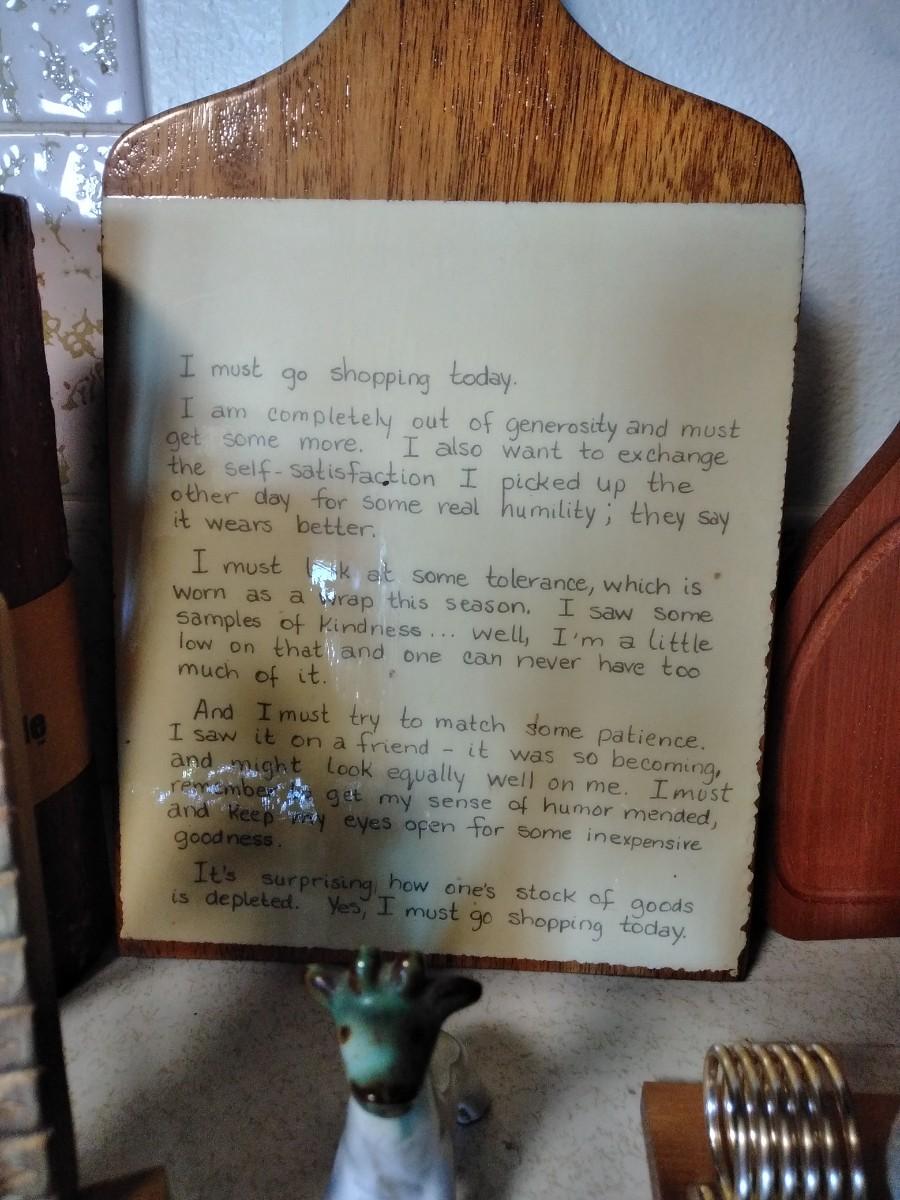 I must go shopping today.
I am completely out of generosity and must
get some more. I also want to exchange
the self-satisfaction I picked up the
other day for some real humility; they say
it wears better.
I must look at some tolerance, which is
worn as a wrap this season. I saw some
samples of kindness... well, I'm a little
low on that and one can never have too
much of it.
And I must try to match some patience.
I saw it on a friend - it was so becoming,
and might look equally well on me. I must
remember to get my sense of humor mended,
and keep my eyes open for some inexpensive
goodness.
It's surprising, how one's stock of goods
is depleted. Yes, I must go shopping today.